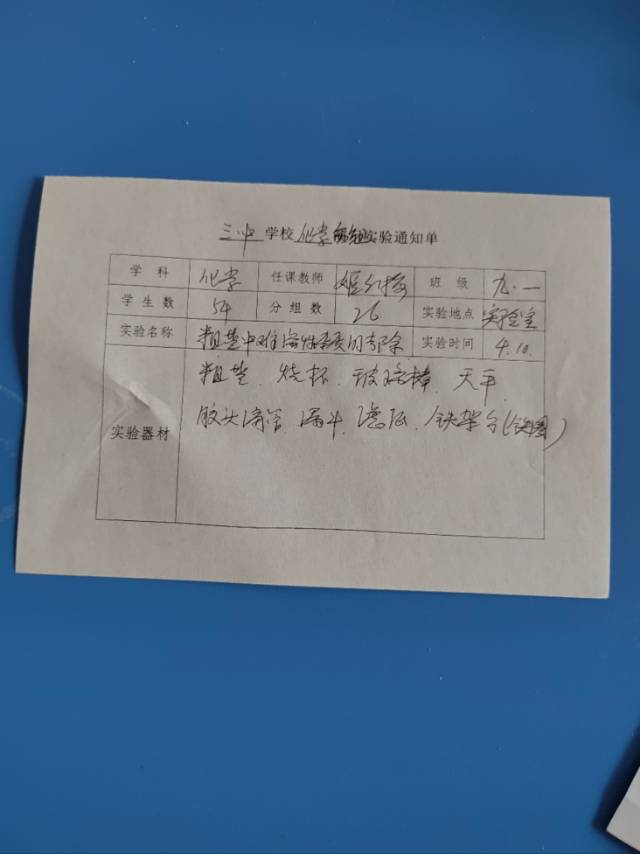 三中 学校 化学 实验通知单
学 科 化学 任课教师 姬红梅 班 级 九.一
学生数 54 分组数 26 实验地点 实验室
实验名称 粗盐中难溶性杂质的去除 实验时间 4.10.
实验器材 粗盐、烧杯、玻璃棒、天平、
胶头滴管、漏斗、滤纸、铁架台(铁圈)